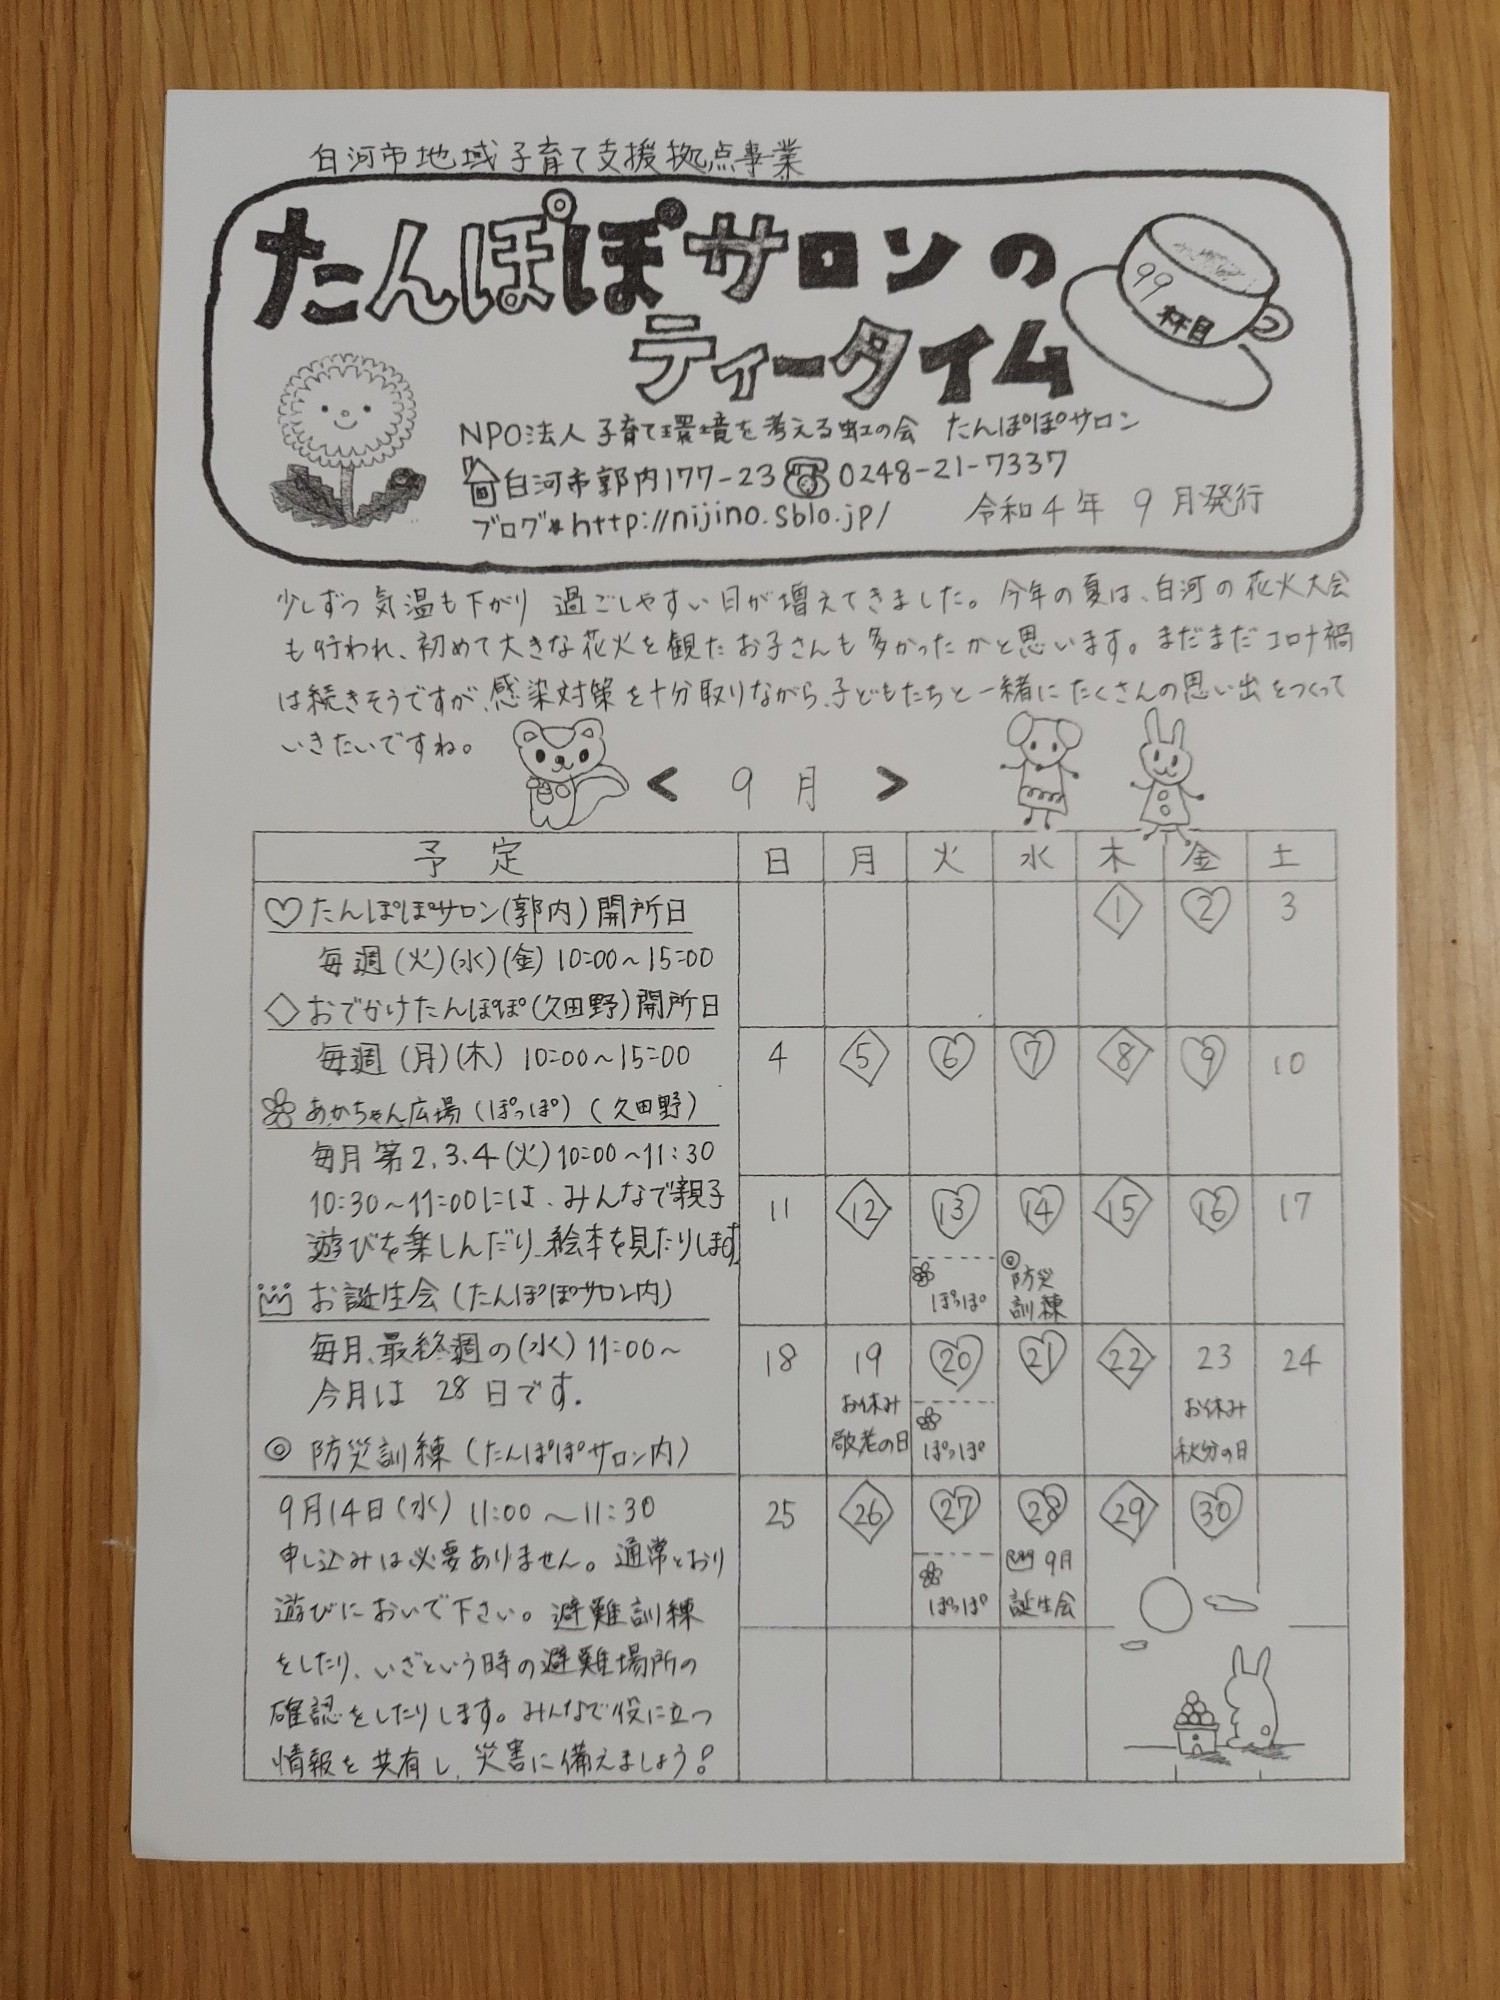 白河市地域子育て支援拠点事業
たんぽぽサロンの
ティータイム
99
杯目
NPO法人 子育て環境を考える虹の会 たんぽぽサロン
白河市郭内177-23 0248-21-7337
ブログ http://nijino.sblo.jp/ 令和4年 9月発行
少しずつ気温も下がり 過ごしやすい日が増えてきました。今年の夏は、白河の花火大会
も行われ、初めて大きな花火を観たお子さんも多かったかと思います。まだまだコロナ禍
は続きそうですが、感染対策を十分取りながら、子どもたちと一緒にたくさんの思い出をつくって
いきたいですね。
< 9月 >
予定 日 月 火 水 木 金 土
♡たんぽぽサロン(郭内)開所日
毎週(火)(水)(金)10:00~15:00
◇おでかけたんぽぽ(久田野)開所日
毎週(月)(木) 10:00~15:00
あかちゃん広場(ぽっぽ)(久田野)
毎月第2.3.4(火)10:00~11:30
10:30~11:00には、みんなで親子
遊びを楽しんだり、絵本を見たりします
お誕生会(たんぽぽサロン内)
毎月、最終週の(水)11:00~
今月は 28日です.
◎ 防災訓練(たんぽぽサロン内)
9月14日(水) 11:00~11:30
申し込みは必要ありません。通常どおり
遊びにおいで下さい。避難訓練
をしたり、いざという時の避難場所の
確認をしたりします。みんなで役に立つ
情報を共有し、災害に備えましょう!
1 2 3
4 5 6 7 8 9 10
11 12 13 14 15 16 17
ぽっぽ
◎防災
訓練
18 19 20 21 22 23 24
お休み
敬老の日
ぽっぽ
お休み
秋分の日
25 26 27 28 29 30
ぽっぽ
9月
誕生会